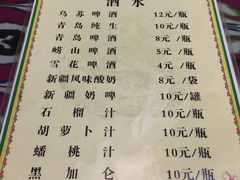 酒水
乌苏啤酒 12元/瓶
青岛纯生 10元/瓶
青岛啤酒 8元/瓶
崂山啤酒 5元/瓶
雪花啤酒 4元/瓶
新疆风味酸奶 8元/袋
新疆奶啤 10元/罐
石榴汁 10元/瓶
胡萝卜汁 10元/瓶
蟠桃汁 10元/瓶
黑加仑 10元/瓶